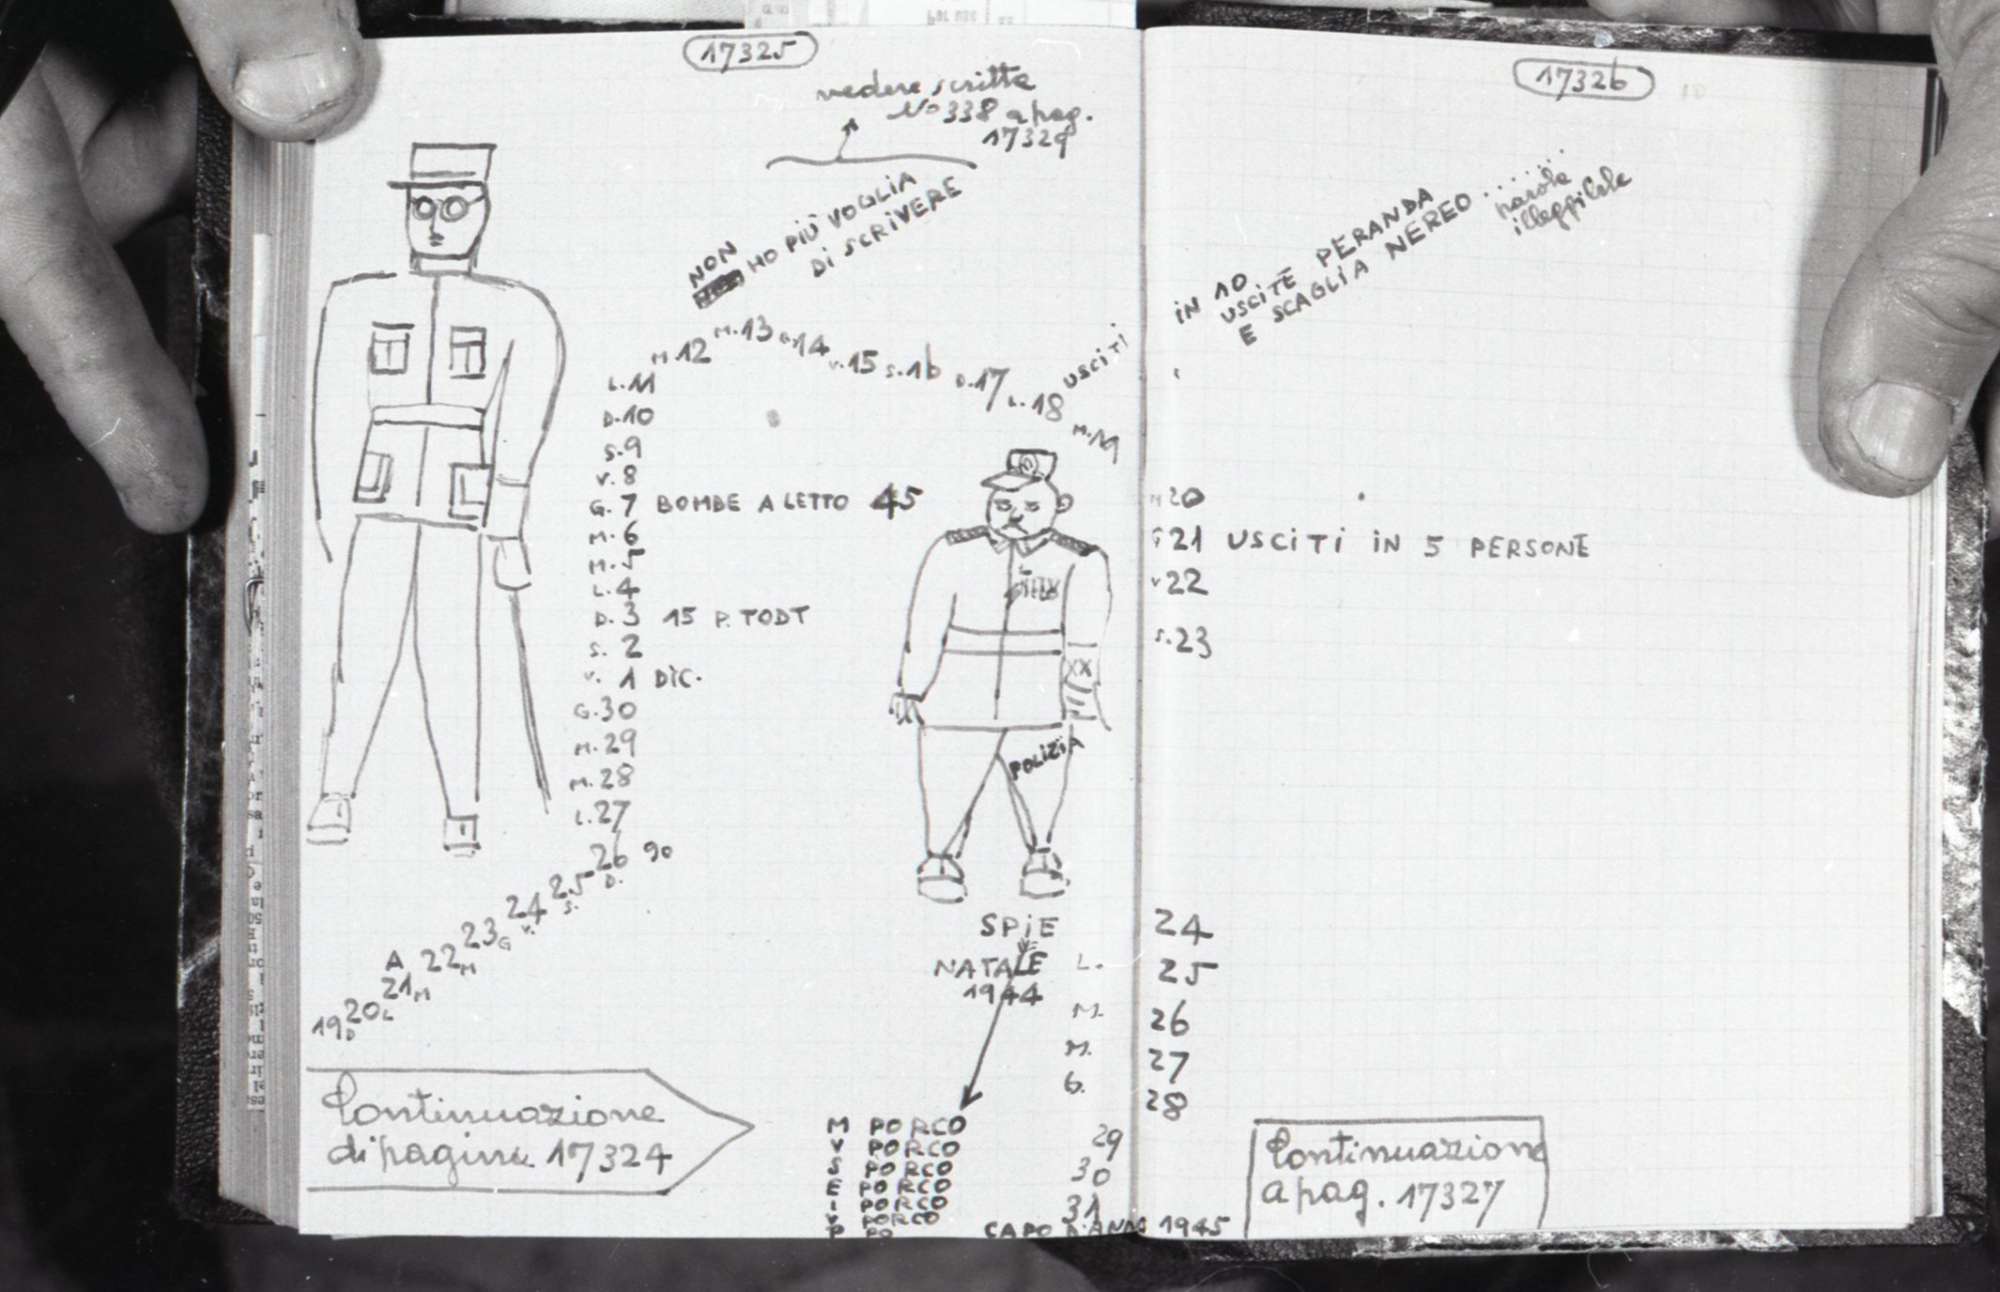 17325
vedere scritta
No 338 a pag.
17329
NON
HO PIÙ VOGLIA
DI SCRIVERE
M.12 M.13 G.14 V.15 S.16 D.17 L.18 M.19
USCITI
L.11
D.10
S.9
V.8
G.7 BOMBE A LETTO 45
M.6
M.5
L.4
D.3 15 P. TODT
S.2
V. 1 DIC.
G.30
M.29
M.28
L.27
26 D. 90
25 S.
24 V.
23 G
A 22 M
21 M
20 L
19 D
POLIZIA
SPIE
NATALE L.
1944
M.
M.
G.
M PORCO
V PORCO 29
S PORCO 30
E PORCO
I PORCO 31
V PORCO
P PO CAPO D'ANNO 1945
Continuazione
di pagina 17324
17326
IN 10
USCITE PERANDA
E SCAGLIA NEREO ......
parola
illeggibile
20
G21 USCITI IN 5 PERSONE
V22
S.23
24
25
26
27
28
Continuazione
a pag. 17327